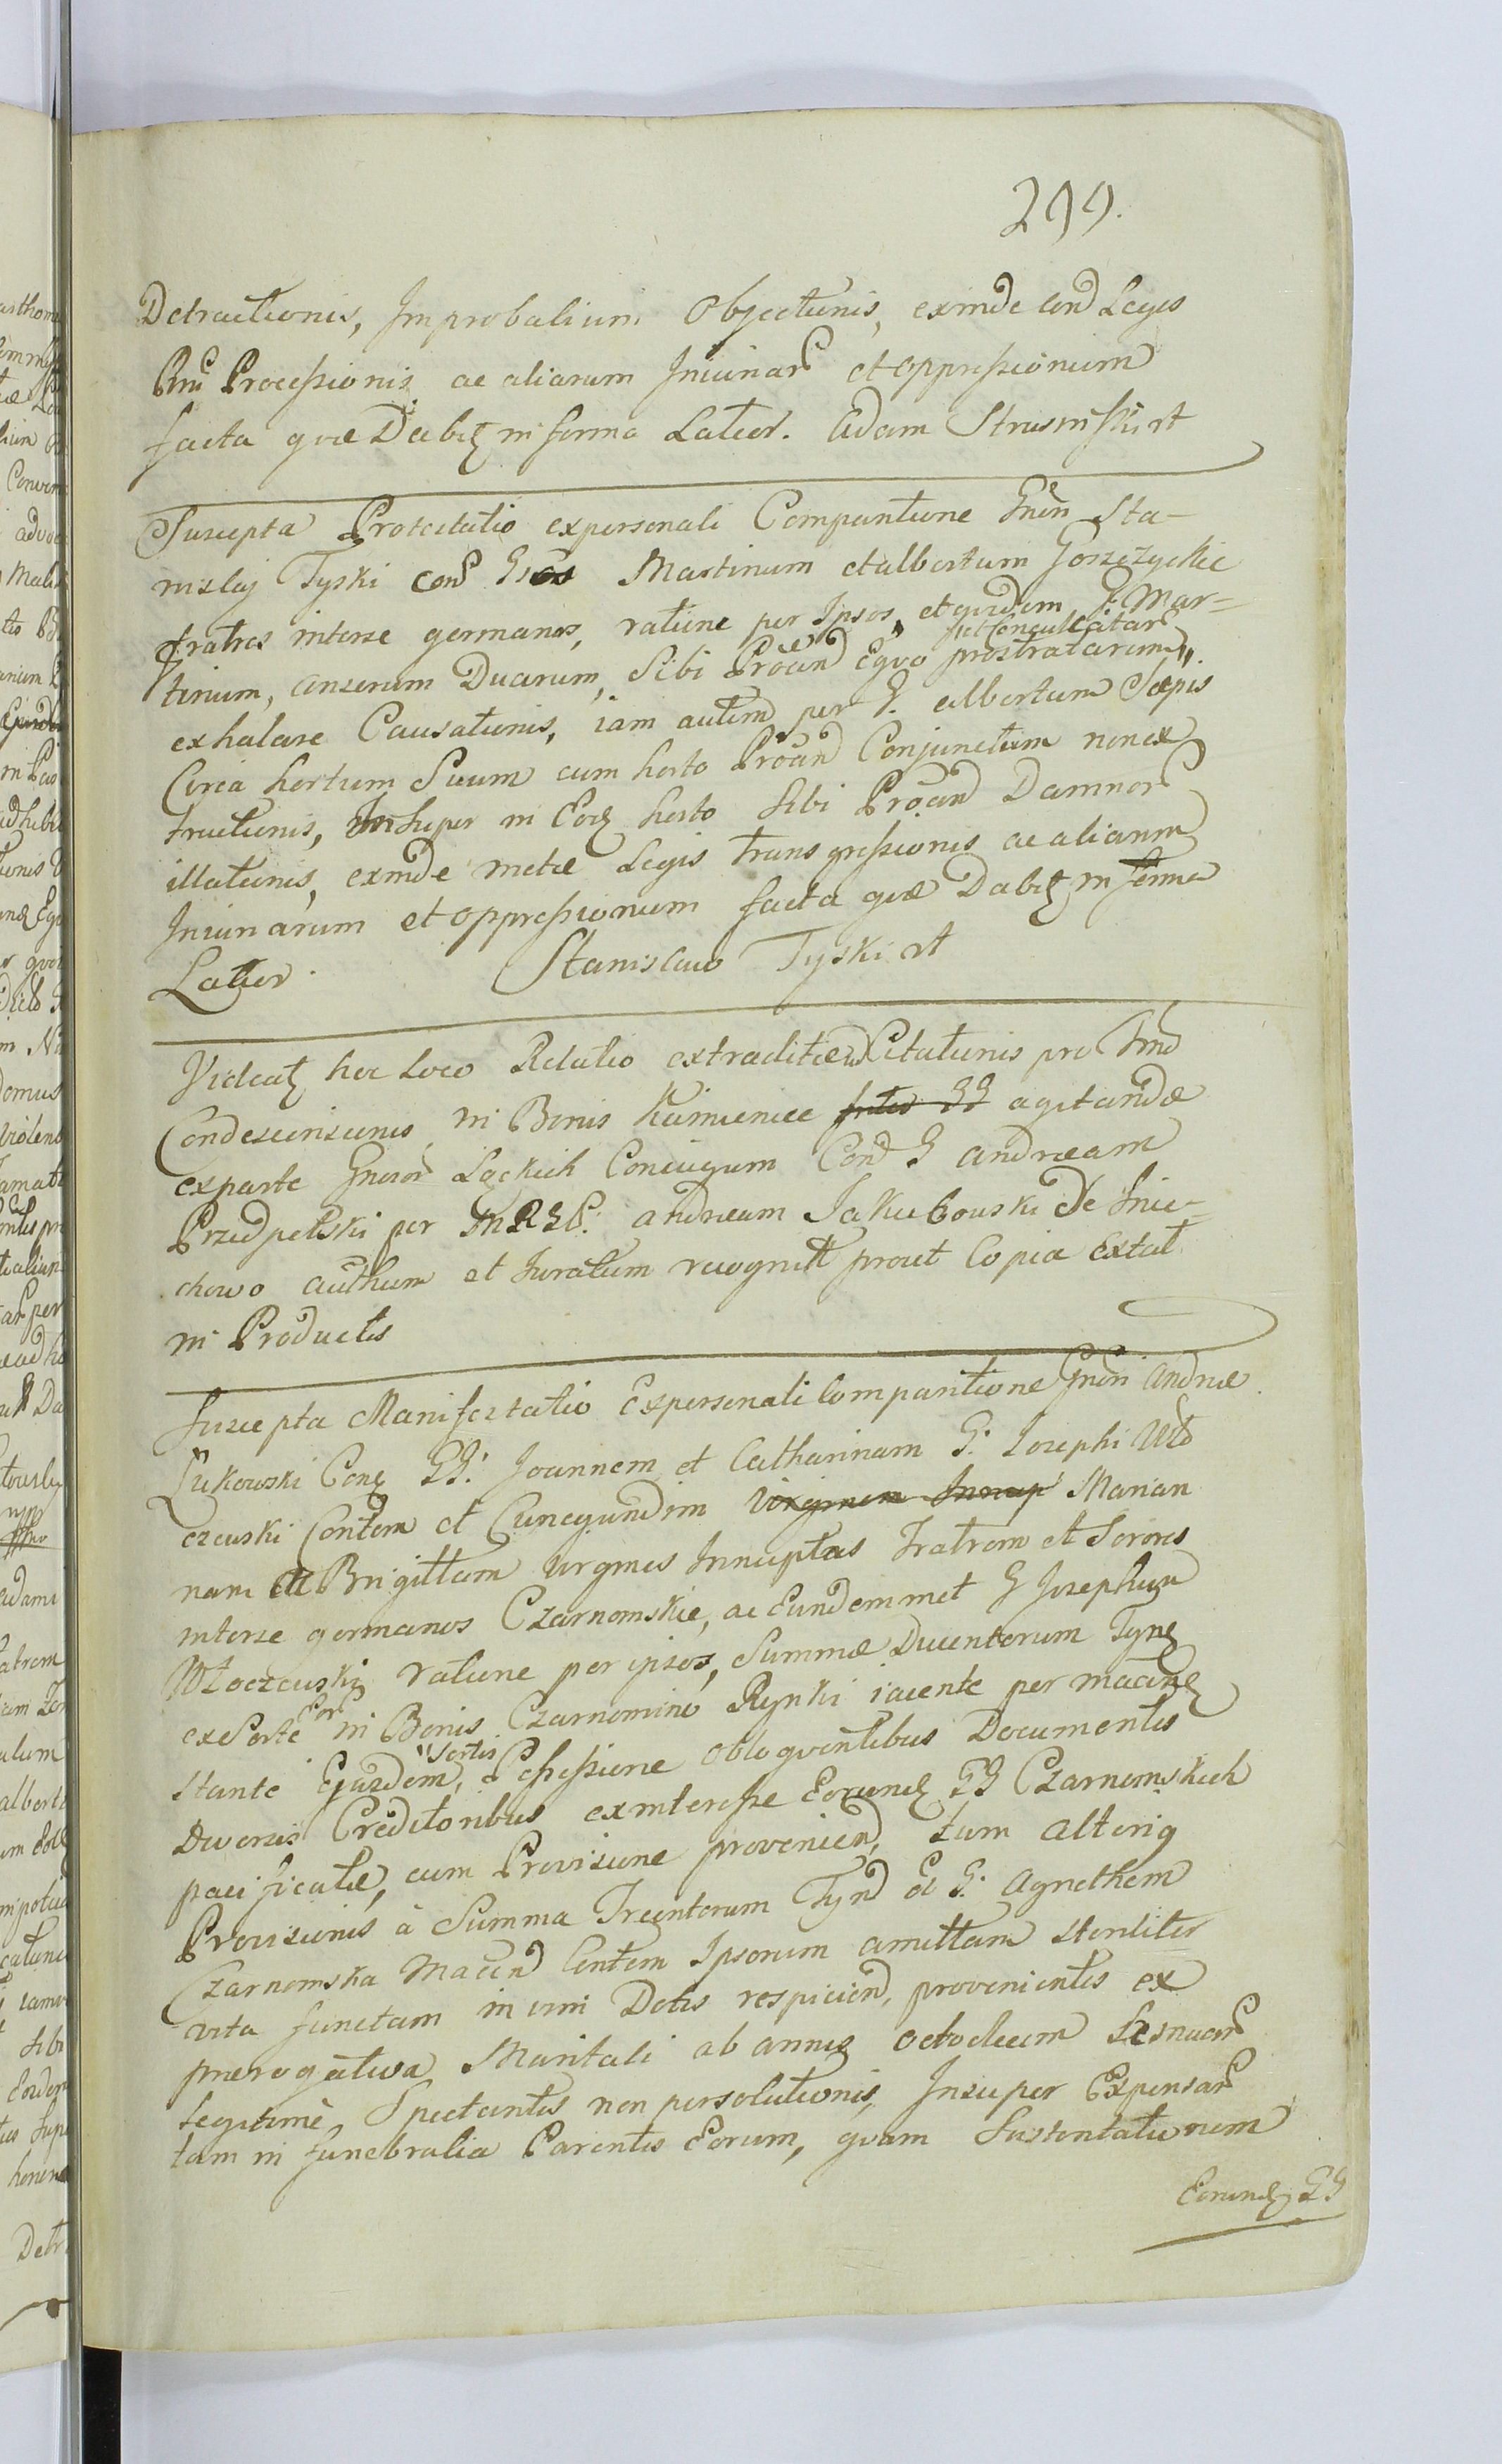 299.
Detractionis, Improbalium Objectionis, exinde Cond Legis
Pnu Processionis ac aliarum Iniuriar et oppressionum
facta quæ Dabitz in forma Latior. Adam Strusinski rt
Suscepta Protestatio expersonali Comparitione Gnen Sta-
nislaj Tyski Con GGos Martinum et albertum Goszczyckie
fratres interse germanos, ratione per Ipsos, et quidem G. Mar-
tinum, anserum Duarum, Sibi Proãnd Equo prostratarum
et Conculcatar
exhalare Causationis, iam autem per G. albertum Sepis
Circa hortum Suum cum horto Proãnd Conjunctum non ex
tructionis, Insuper in Eodz horto Sibi Proãnd Damnor
illationis, exinde metæ Legis transgressionis ac aliarum
Iniuriarum et oppressionum facta quæ Dabitz in forma
Latior. Stanislaus Tyski rt
Videatz hoc Loco Relatio extraditæ Citationis pro Tmo
Condescensionis in Bonis Kamienice agitandæ
exparte Gneror Łąckich Coniugum Cond G Andream
Przedpełski per MRGP. andream Jakubowski de Snie-
chowo authum et Iuratum recognitt prout Copia Extat
in Productis
Suscepta Manifestatio Expersonali Comparitione Gnen Andreæ
Łukowski Conz GG. Joannem et Catharinam G. Josephi Wło
czewski Contem et Cunegundim Virginem Innup Marian
nam et Brigittam Virgines Innuptas Fratrem et Sorores
interse germanos Czarnomskie, ac Eundemmet G Josephum
Włoczewski ratione per ipsos, Summæ Ducentorum Tynz
exSorte Eor in Bonis Czarnomino Rynki iacente per macinz
stante Ejusdem, Sortis Possessione obloquentibus Documentis
Diversis Creditoribus exinteresse Eorundz GG Czarnomskich
pacificatæ, cum Provisione proveniend, tum alteriq
Provisionis à Summa Trecentorum Tynd et G. Agnethem
Czarnomska Macind Contem Ipsorum amittam steriliter
vita functam in vim Dotis respiciend, provenientis ex
prærogativa Maritali ab annis octodecim
legitimè, Spectantis non persolutionis, Insuper Expensar
tam in funebralia Parentis Eorum, quam Sustentationem
Eorundz GG